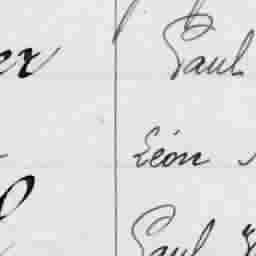 er Paul
Léon
Paul